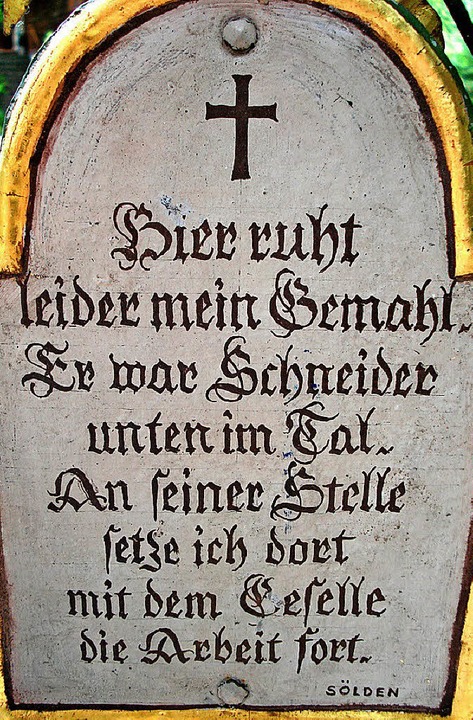 Hier ruht
leider mein Gemahl.
Er war Schneider
unten im Tal.
An ſeiner Stelle
ſetze ich dort
mit dem Geſelle
die Arbeit fort.
SÖLDEN